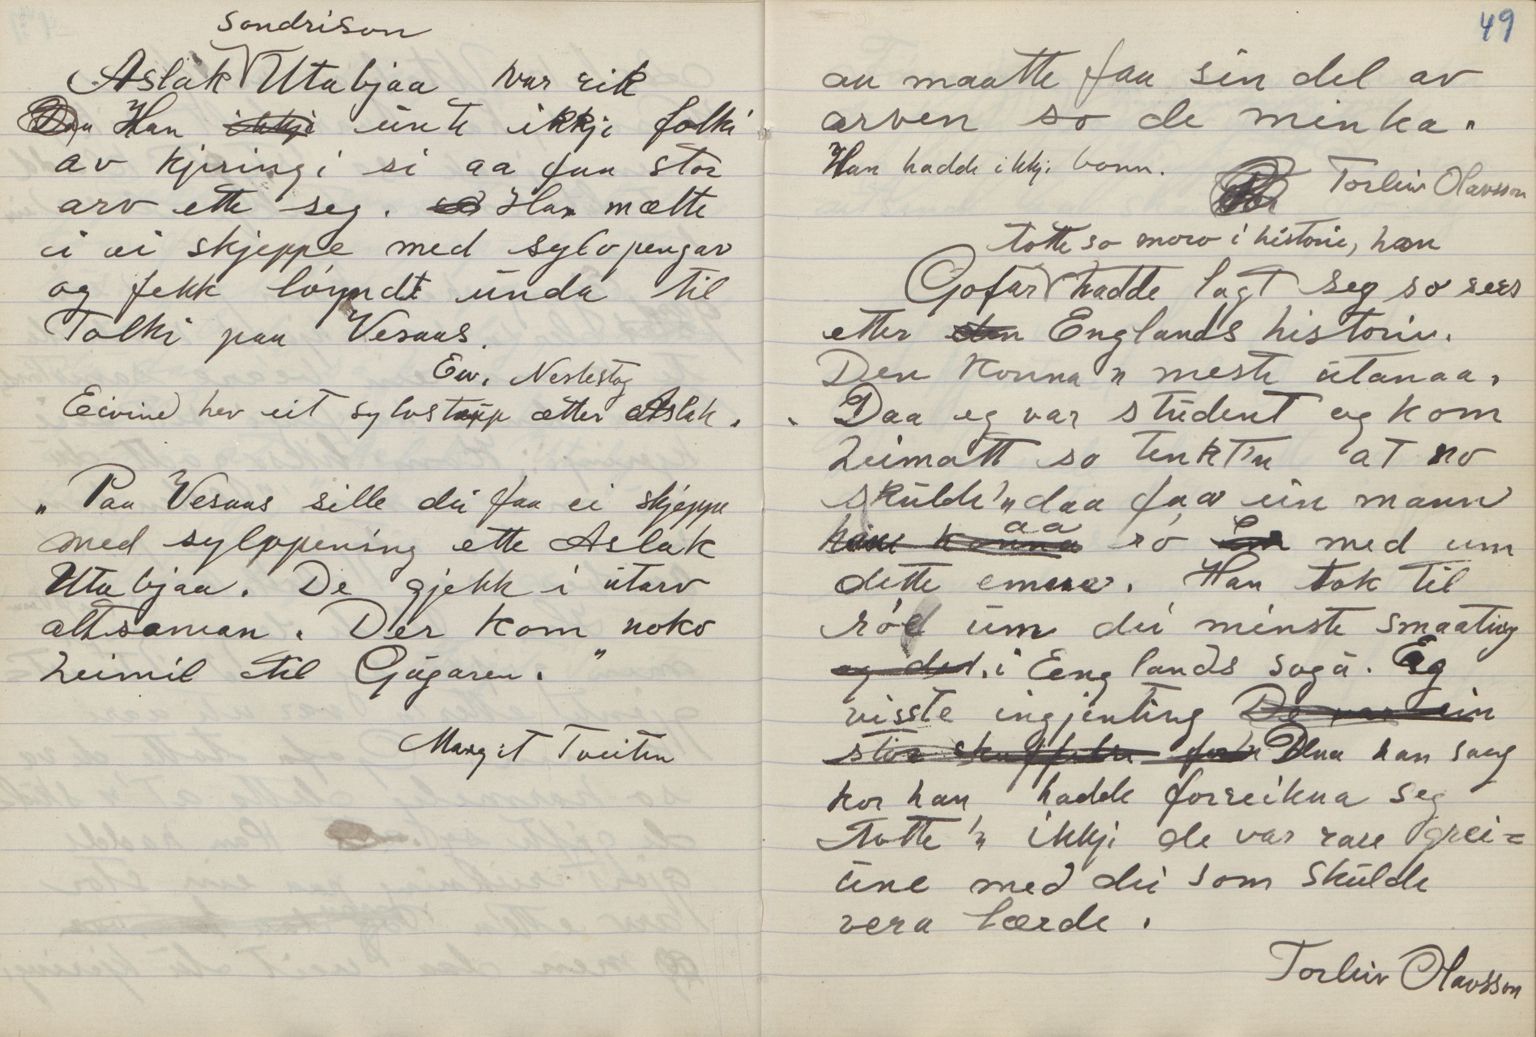 Sondrison
Aslak Utabjaa var rik
Han ikkje unte ikkje folki
av kjeringi si aa faa stor
arv ette seg. Han mælte
i ei skjeppe med sylvpengar
og fekk løyndt unda til
Tolki paa Vesaas.
Eiv. Nestestog
Eivind hev eit sylvstaup ætter Aslak.
"Paa Vesaas sille du faa ei skjeppe
med sylvpening ette Aslak
Utabjaa. De gjekk i utarv
altsaman. Der kom noko
heimil til Gugaren."
Margit Tveiten
49
an maatte faa sin del av
arven so de minka.
Han hadde ikkje bonn.
Torleiv Olavsson
totte so moro i historie, han
Gofar hadde lagt seg so sers
etter den Englands historie.
Den konna'n meste utanaa.
Daa eg var student og kom
heimatt so tenkt'n at no
skulde'n daa faa ein mann
han konna aa rø med um
dette emne. Han tok til
røe um dei minste smaating
og det i Englands soga. Eg
visste ingjenting De var ein
stor skuffelse for Daa han saag
kor han hadde forreikna seg
totte'n ikkji de var rare grei=
une med dei som skulde
vera lærde.
Torleiv Olavsson